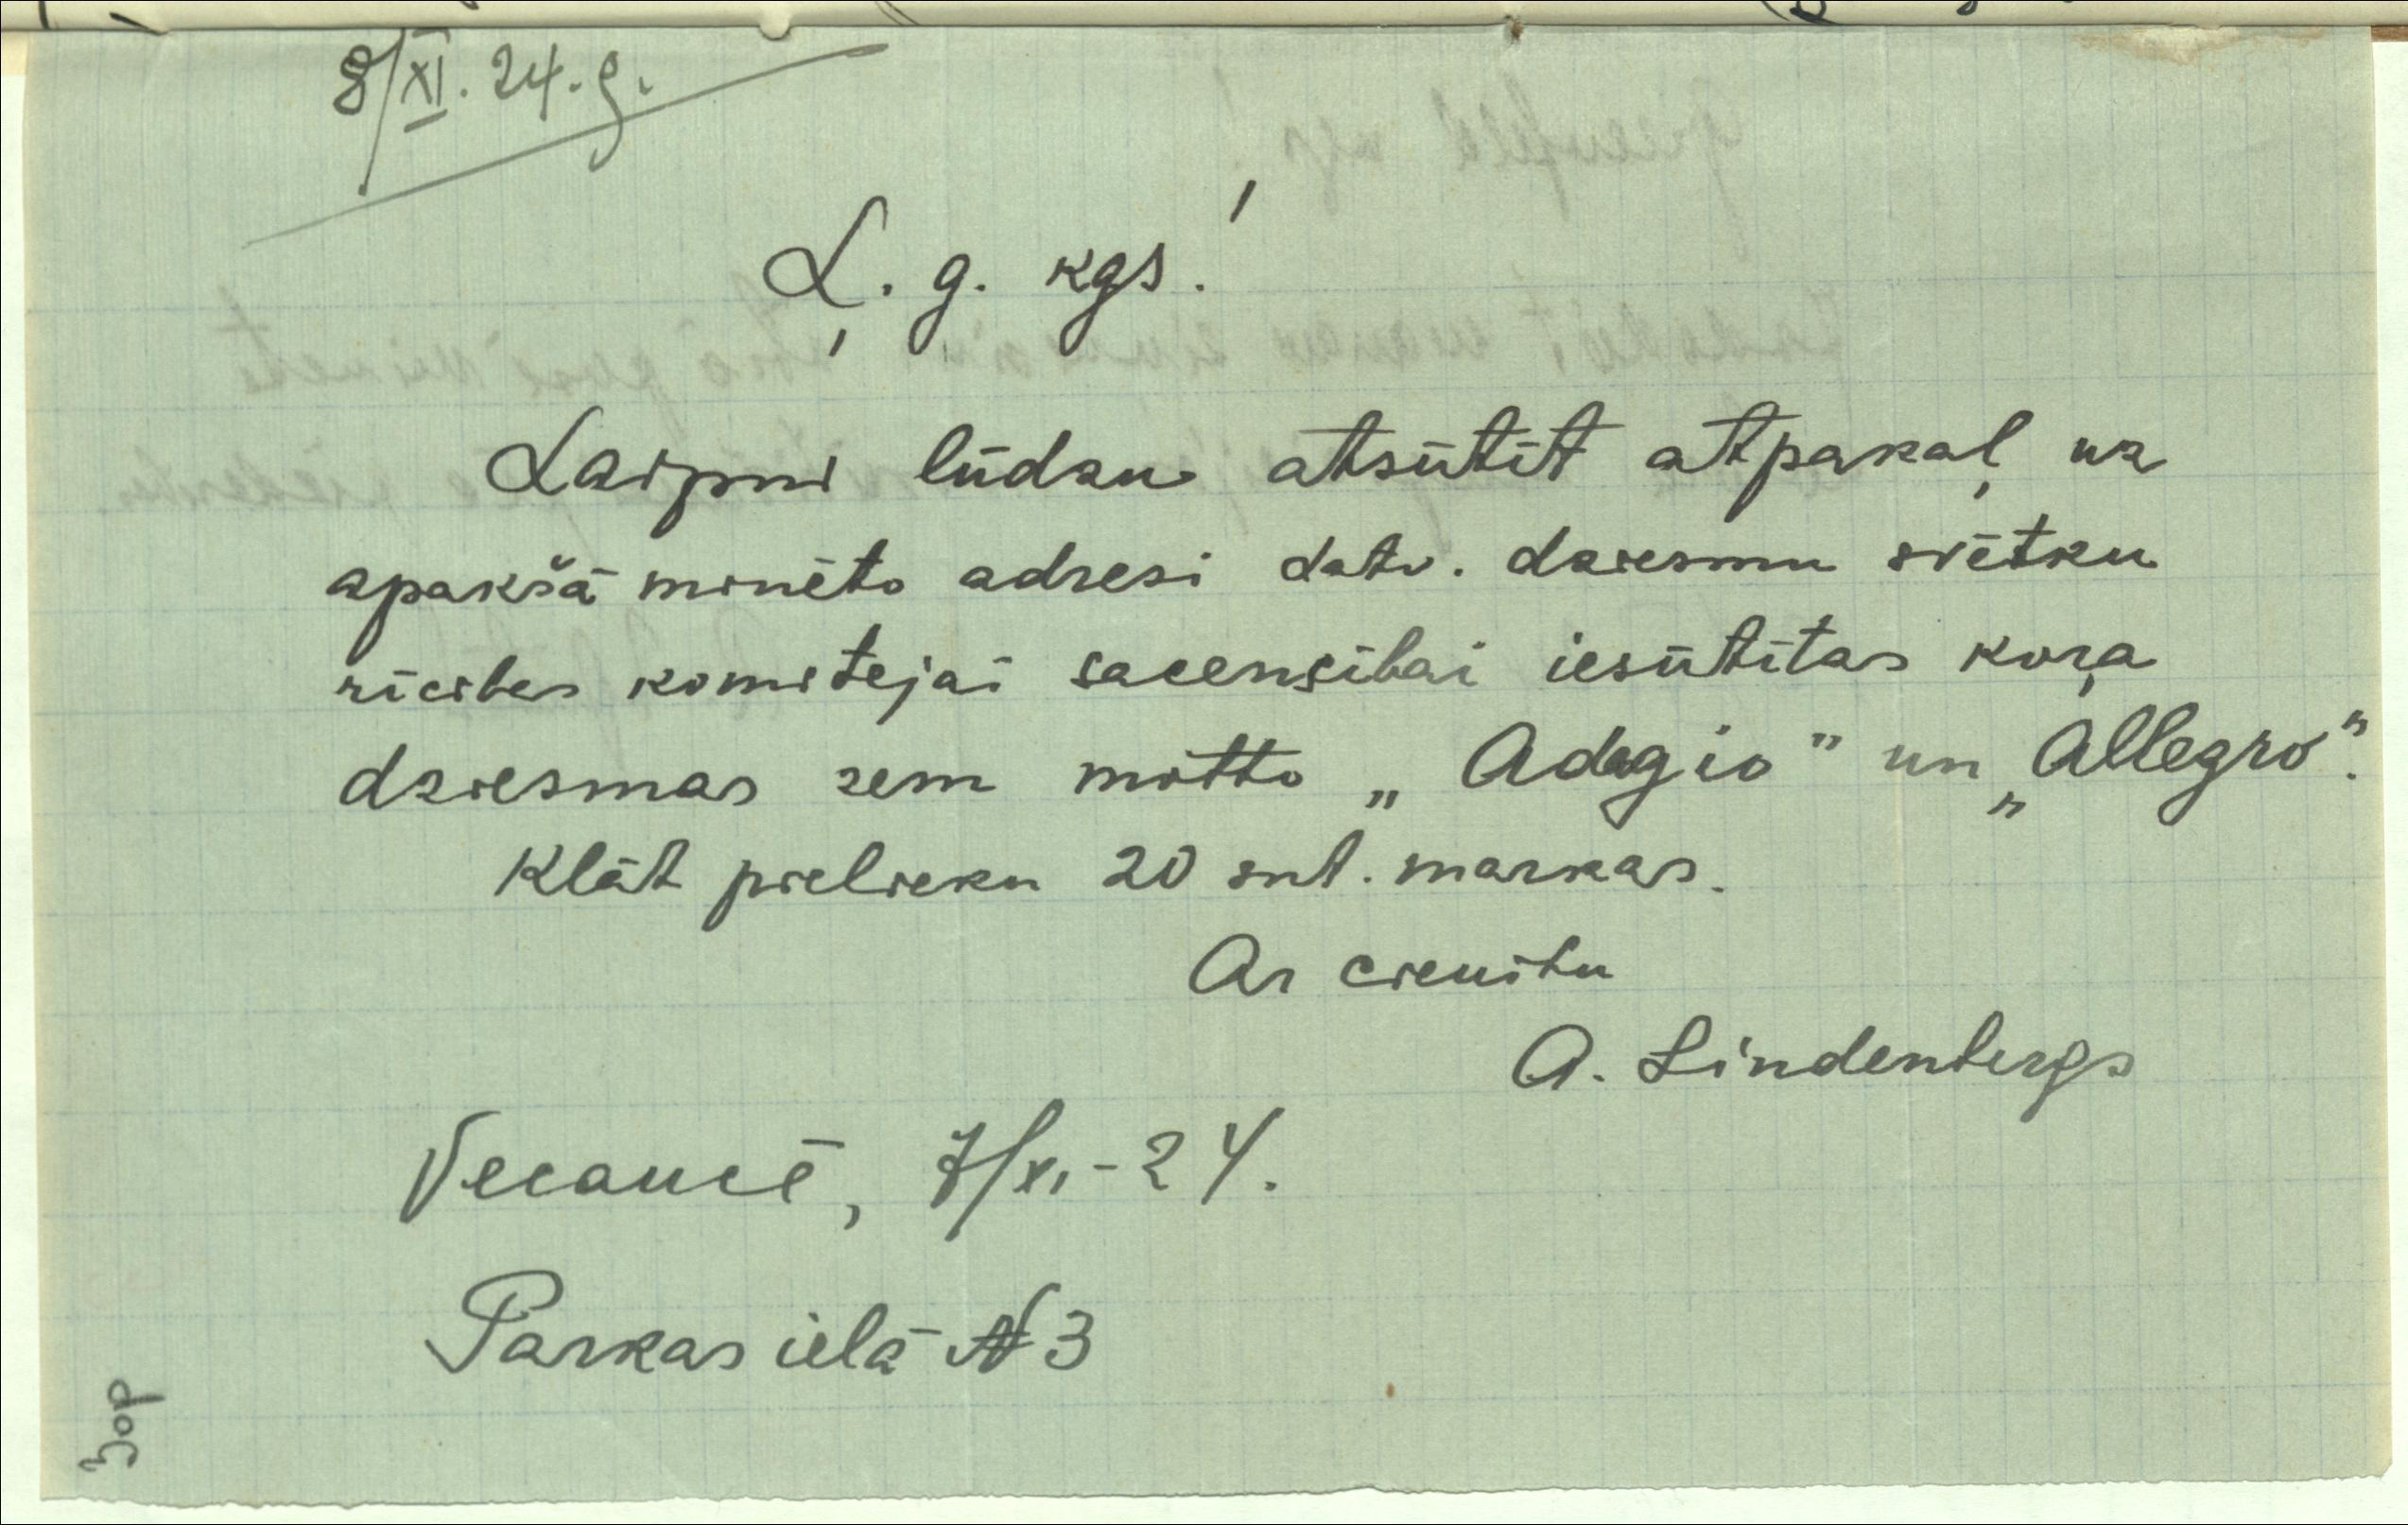 8/XI. 24. g.
Ļ. g. kgs.!
Laipni lūdzu atsūtīt atpakaļ uz
apakšā minēto adresi Latv. dziesmu svētku
rīcibas komitejai sacensībai iesūtītas koŗa
dziesmas zem motto „Adagio" un „Allegro".
Klāt pielieku 20 snt. markas.
Ar cienību
A. Lindenbergs
Vecaucē, 7/XI-24.
Parkas ielā № 3